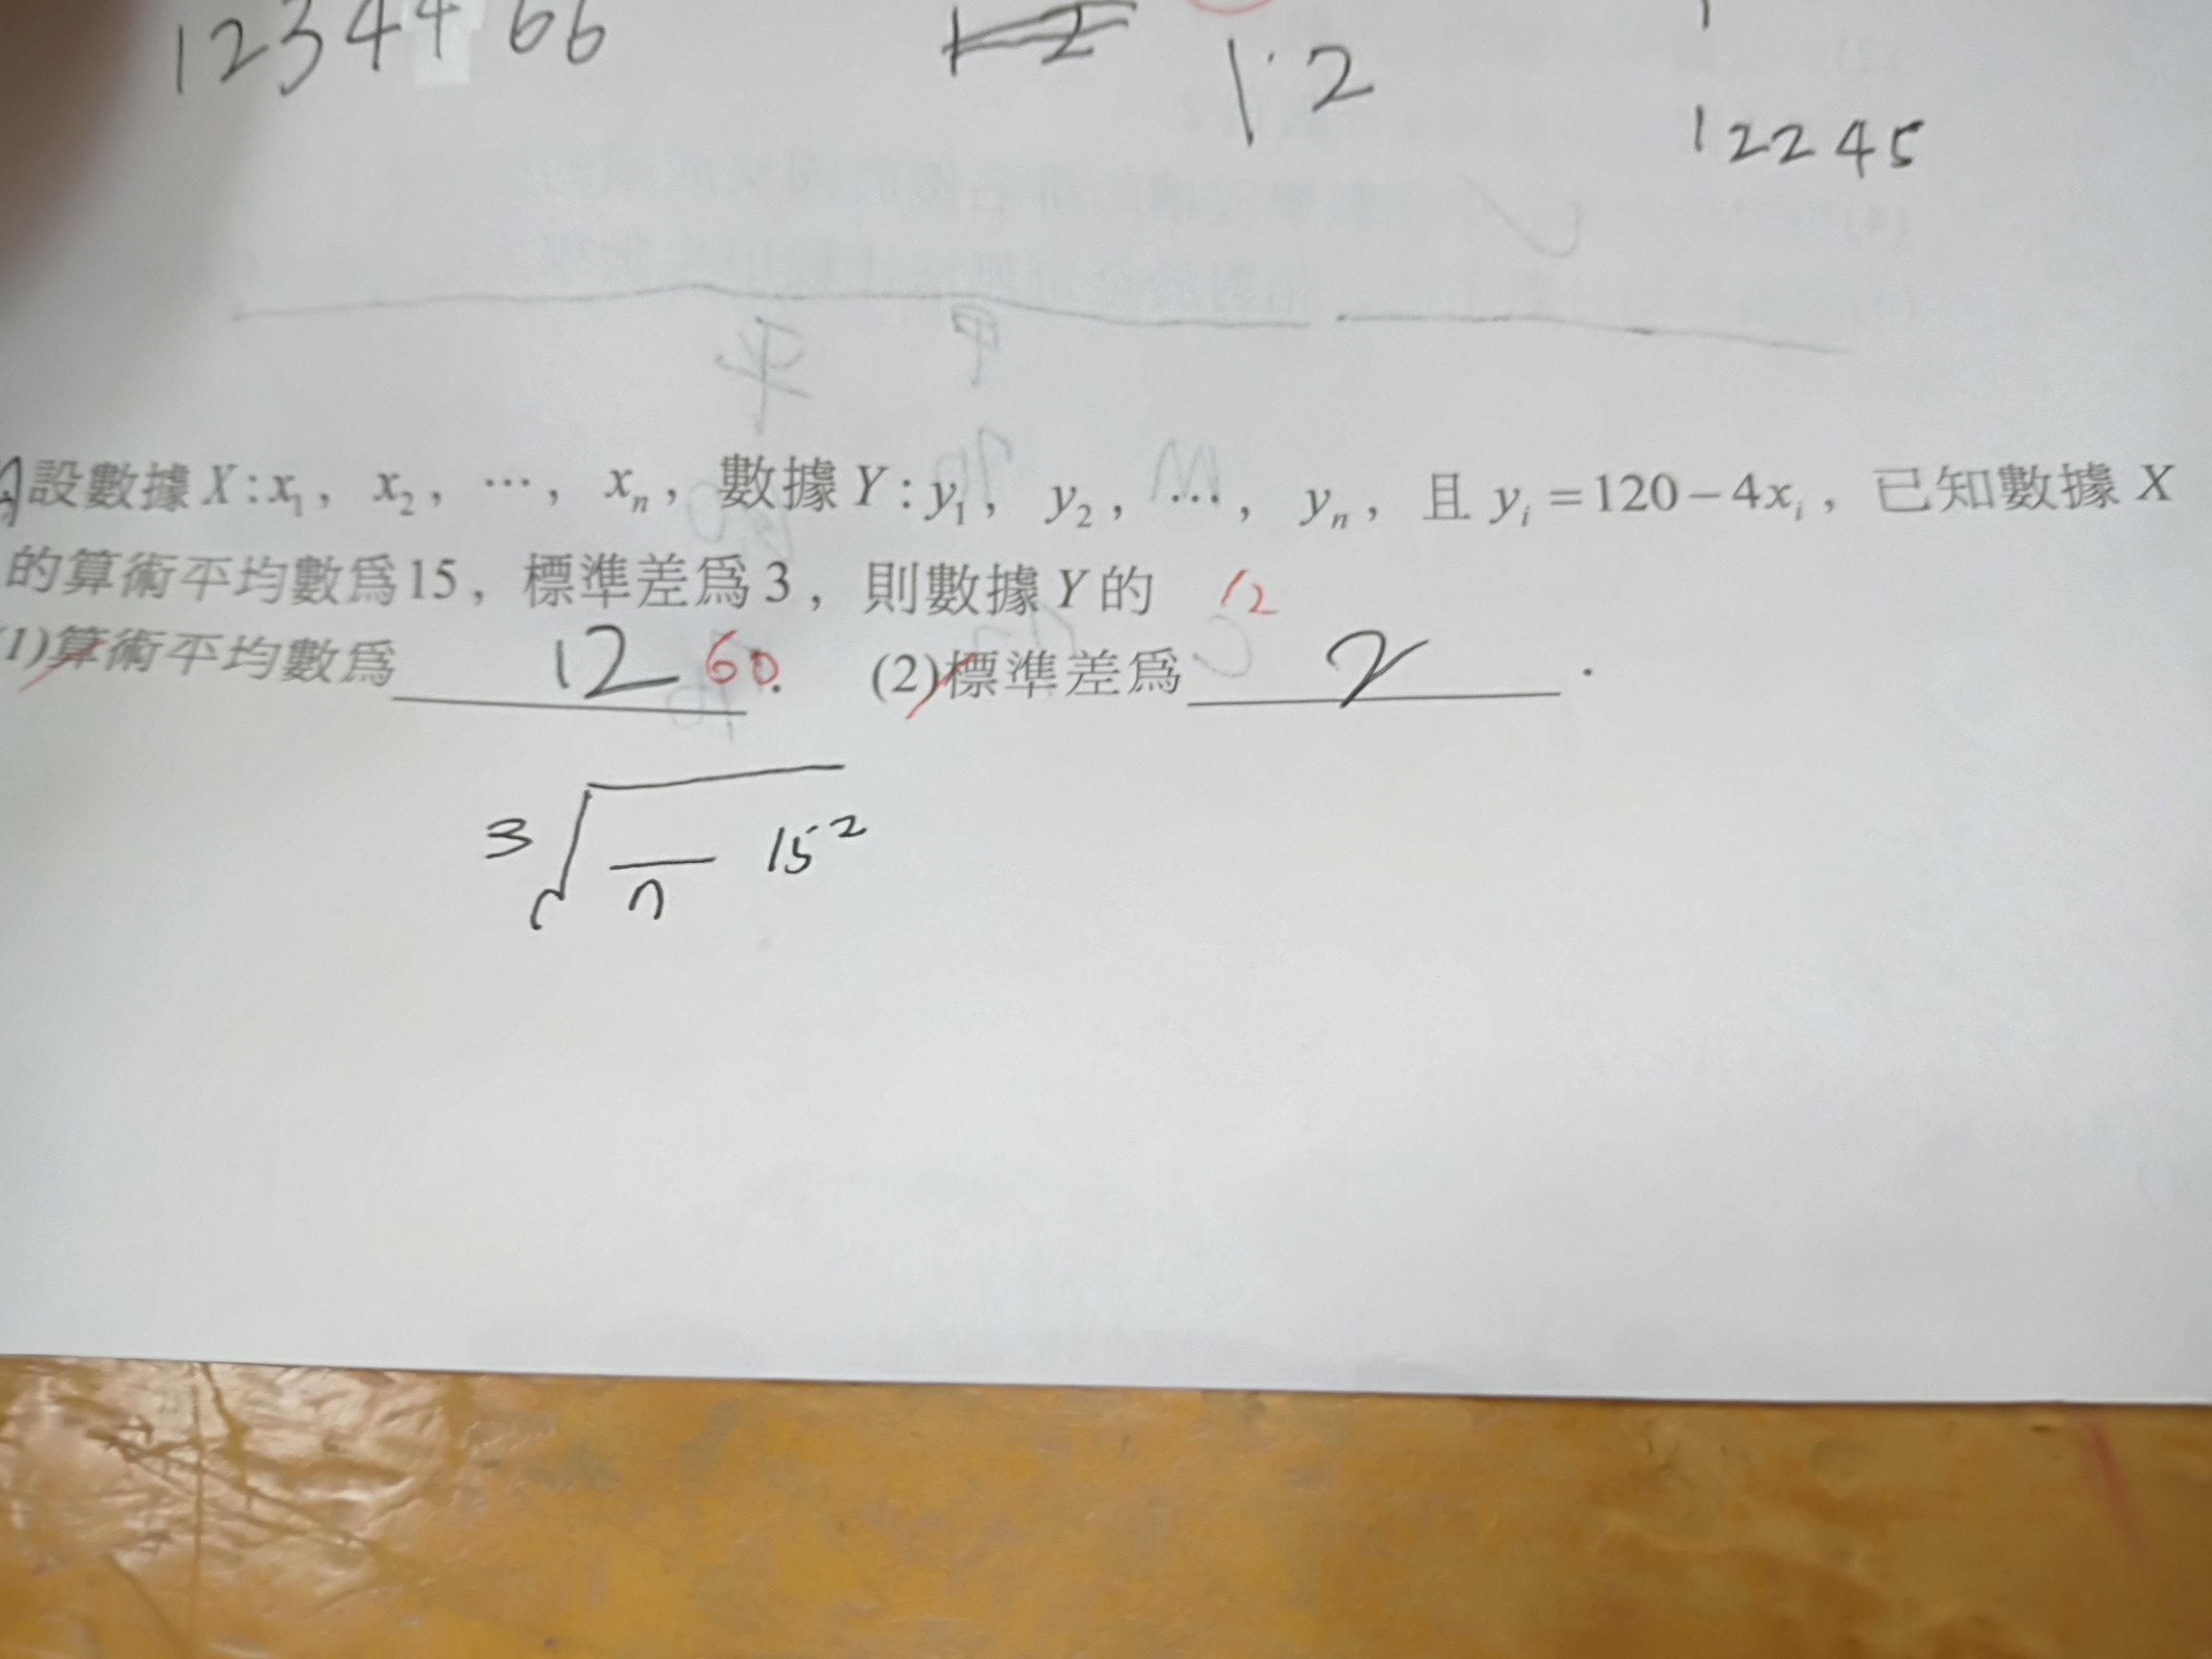 1234466
12
1 2
12245
設數據X:x₁, x₂, …, xₙ, 數據Y:y₁, y₂, …, yₙ, 且 yᵢ=120−4xᵢ, 已知數據X
的算術平均數為15, 標準差為3, 則數據Y的 12
(1)算術平均數為 12 60. (2)標準差為 2 .
3√ — 15²
n